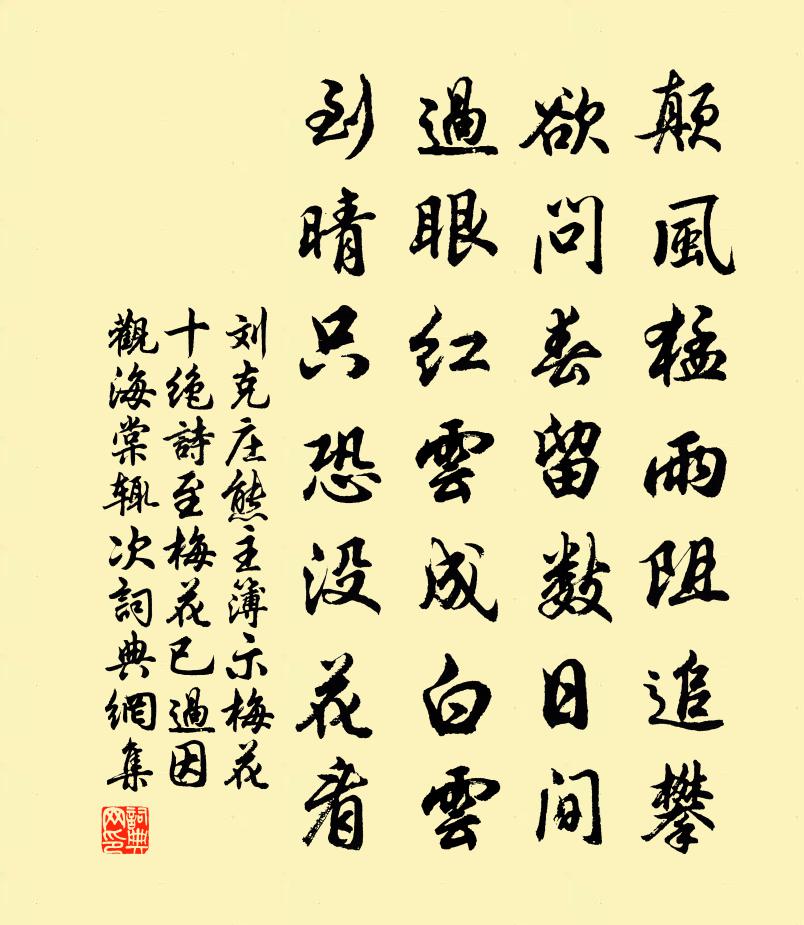 顛風猛雨阻追攀
欲問春留數日間
過眼紅雲成白雲
到晴只恐没花看
刘克庄熊主簿示梅花
十绝詩至梅花已過因
觀海棠辄次詞典網集
詞典網印